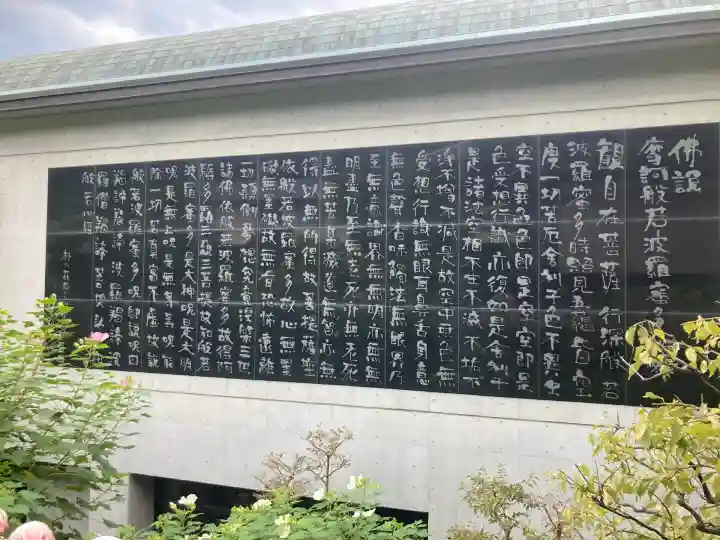 佛說
摩訶般若波羅蜜多
觀自在菩薩 行深般若
波羅蜜多時照見五蘊皆空
度一切苦厄舍利子色不異空
空不異色色即是空空即是
色受想行識亦復如是舍利子
是諸法空相不生不滅不垢不
淨不增不減是故空中無色無
受想行識無眼耳鼻舌身意
無色聲香味觸法無眼界乃
至無意識界無無明亦無無
明盡乃至無老死亦無老死
盡無苦集滅道無智亦無
得以無所得故菩提薩埵
依般若波羅蜜多故心無罣
礙無罣礙故無有恐怖遠離
一切顛倒夢想究竟涅槃三世
諸佛依般若波羅蜜多故得阿
耨多羅三藐三菩提故知般若
波羅蜜多是大神呪是大明
呪是無上呪是無等等呪能
除一切苦真實不虛故說
般若波羅蜜多呪即說呪曰
羯諦羯諦 波羅羯諦 波
羅僧羯諦 菩提薩婆訶
般若心經